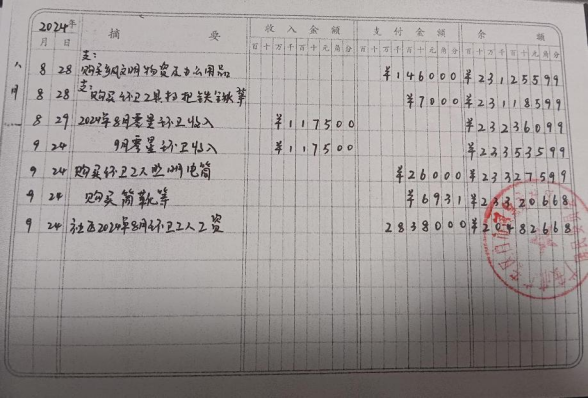 2024年 摘 要 收入金额 支付金额 余 额
月 日 百十万千百十元角分 百十万千百十元角分 百十万千百十元角分
支:
8 28 购买 文明物资及办公用品 ¥146000 ¥23125599
支:
8 28 购买环卫工具扫把铁 等 ¥7000 ¥23118599
8 29 2024年8月零星环卫收入 ¥117500 ¥23236099
9 24 9月零星环卫收入 ¥117500 ¥23353599
9 24 购买环卫工人照明电筒 ¥26000 ¥23327599
9 24 购买筒靴等 ¥6931 ¥23320668
9 24 社区2024年8月环卫工人工资 2838000 ¥20482668